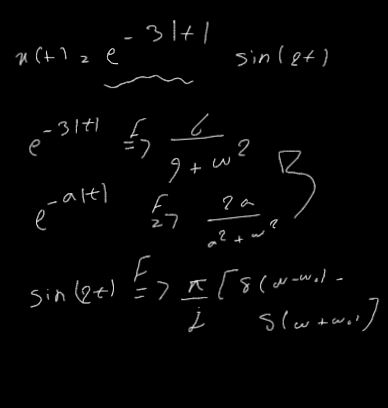 x(t) = e^{-3|t|} sin(2t)
e^{-3|t|} F=> 6/(9 + ω^2)
e^{-a|t|} F=> 2a/(a^2 + ω^2)
sin(2t) F=> π/j [δ(ω-ω₀) -
δ(ω+ω₀)]